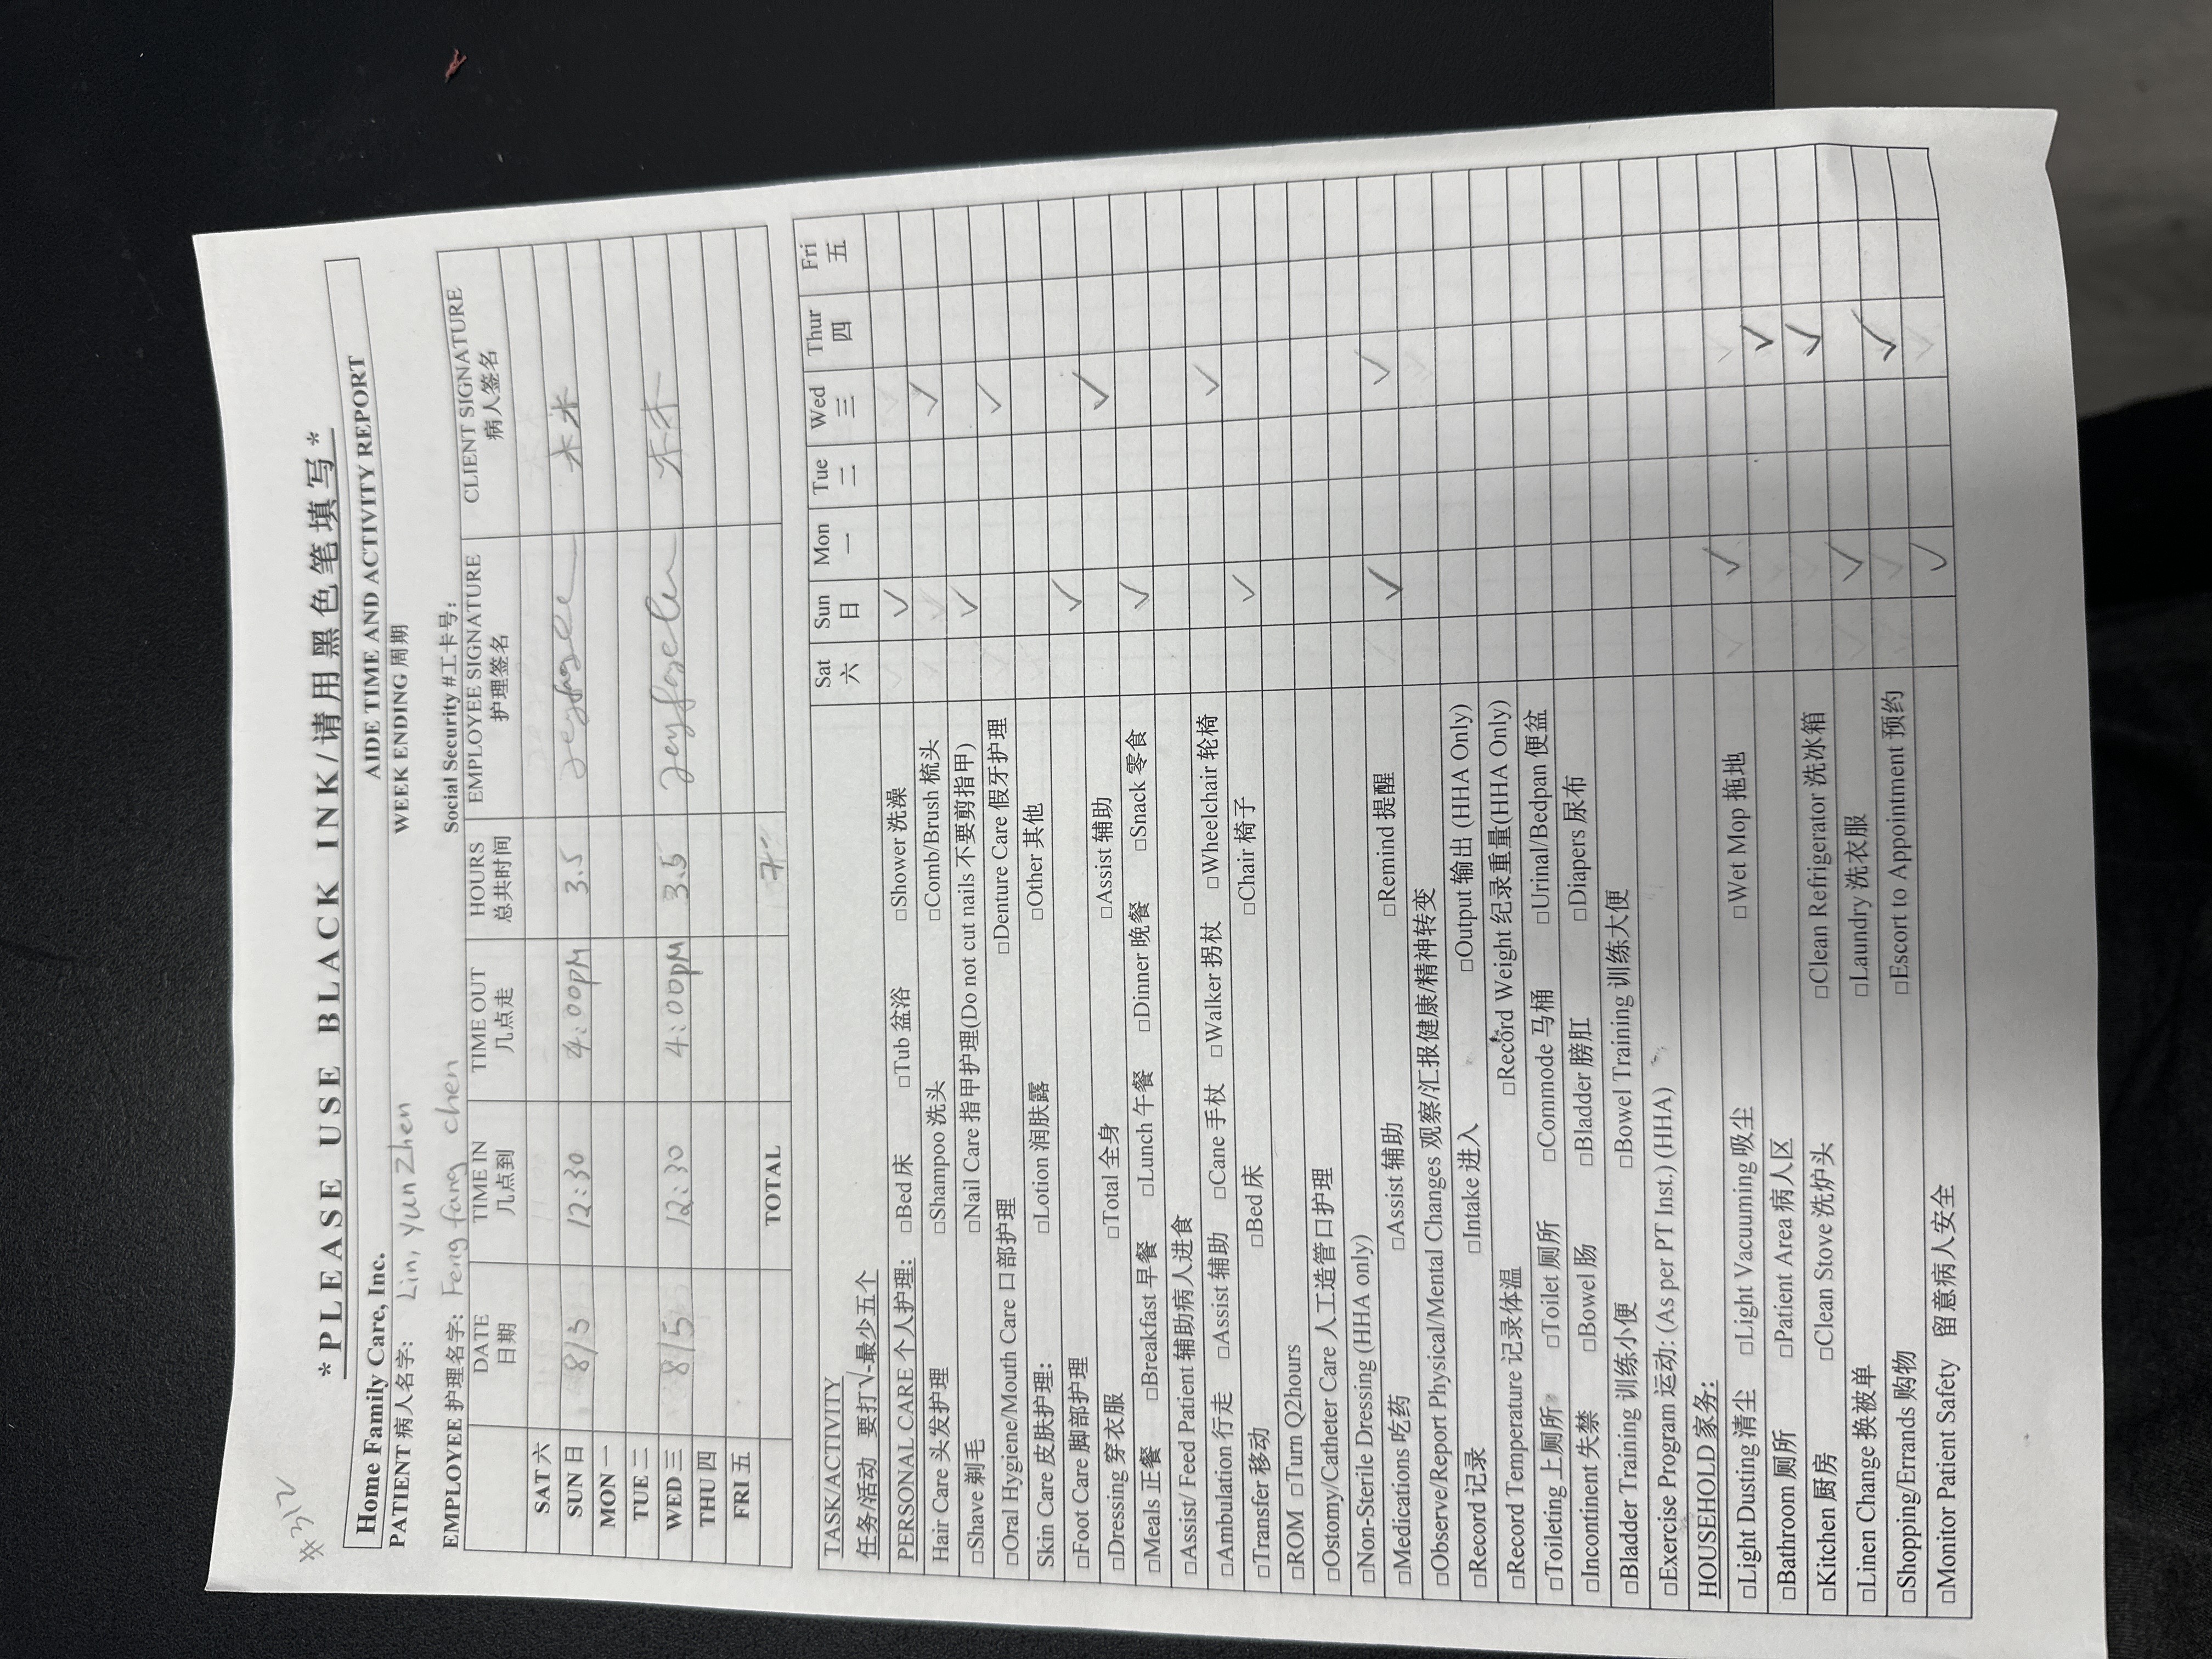 ※312
*PLEASE USE BLACK INK/请用黑色笔填写*
Home Family Care, Inc. AIDE TIME AND ACTIVITY REPORT
PATIENT 病人名字: Lin, Yun Zhen WEEK ENDING 周期
EMPLOYEE 护理名字: Feng fang chen Social Security #工卡号:
DATE TIME IN TIME OUT HOURS EMPLOYEE SIGNATURE CLIENT SIGNATURE
日期 几点到 几点走 总共时间 护理签名 病人签名
SAT 六
SUN 日 8/3 12:30 4:00PM 3.5
MON 一
TUE 二
WED 三 8/5 12:30 4:00PM 3.5
THU 四
FRI 五
TOTAL
TASK/ACTIVITY Sat Sun Mon Tue Wed Thur Fri
任务/活动 要打√-最少五个 六 日 一 二 三 四 五
PERSONAL CARE 个人护理: □Bed 床 □Tub 盆浴 □Shower 洗澡 ✓
Hair Care 头发护理 □Shampoo 洗头 □Comb/Brush 梳头 ✓
□Shave 剃毛 □Nail Care 指甲护理(Do not cut nails 不要剪指甲) ✓
□Oral Hygiene/Mouth Care 口部护理 □Denture Care 假牙护理 ✓
Skin Care 皮肤护理: □Lotion 润肤露 □Other 其他
□Foot Care 脚部护理 ✓
□Dressing 穿衣服 □Total 全身 □Assist 辅助 ✓
□Meals 正餐 □Breakfast 早餐 □Lunch 午餐 □Dinner 晚餐 □Snack 零食 ✓
□Assist/ Feed Patient 辅助病人进食
□Ambulation 行走 □Assist 辅助 □Cane 手杖 □Walker 拐杖 □Wheelchair 轮椅 ✓
□Transfer 移动 □Bed 床 □Chair 椅子 ✓
□ROM □Turn Q2hours
□Ostomy/Catheter Care 人工造管口护理
□Non-Sterile Dressing (HHA only)
□Medications 吃药 □Assist 辅助 □Remind 提醒 ✓ ✓
□Observe/Report Physical/Mental Changes 观察/汇报健康/精神转变
□Record 记录 □Intake 进入 □Output 输出 (HHA Only)
□Record Temperature 记录体温 □Record Weight 纪录重量(HHA Only)
□Toileting 上厕所 □Toilet 厕所 □Commode 马桶 □Urinal/Bedpan 便盆
□Incontinent 失禁 □Bowel 肠 □Bladder 膀肛 □Diapers 尿布
□Bladder Training 训练小便 □Bowel Training 训练大便
□Exercise Program 运动: (As per PT Inst.) (HHA)
HOUSEHOLD 家务:
□Light Dusting 清尘 □Light Vacuuming 吸尘 □Wet Mop 拖地 ✓
□Bathroom 厕所 □Patient Area 病人区 ✓
□Kitchen 厨房 □Clean Stove 洗炉头 □Clean Refrigerator 洗冰箱 ✓
□Linen Change 换被单 □Laundry 洗衣服 ✓
□Shopping/Errands 购物 □Escort to Appointment 预约 ✓
□Monitor Patient Safety 留意病人安全 ✓